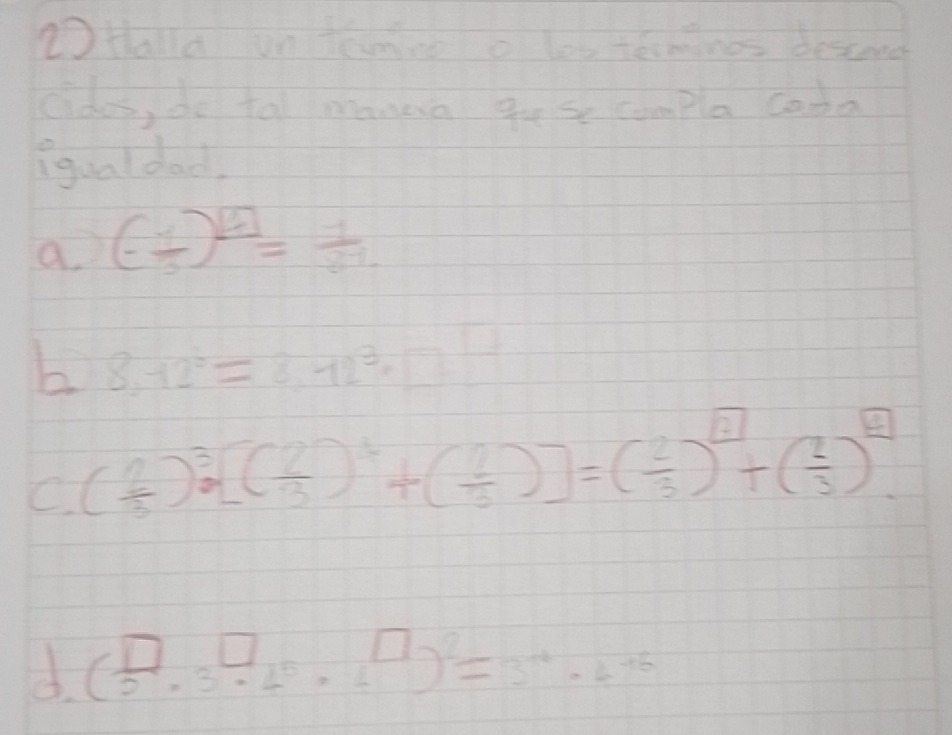 2) Halla un término o los términos descono
cidos, de tal manera que se cumpla cada
igualdad.
a. (- 1/3)^[4] = 1/81.
b. 8 · 12 = 8 · 12³ · □^□
c. (2/3)³ · [(2/3)⁴ + (2/3)] = (2/3)^□ + (2/3)^[4].
d. ( □ · 3^□ · 4⁵ · 4^□)² = 3 · 4